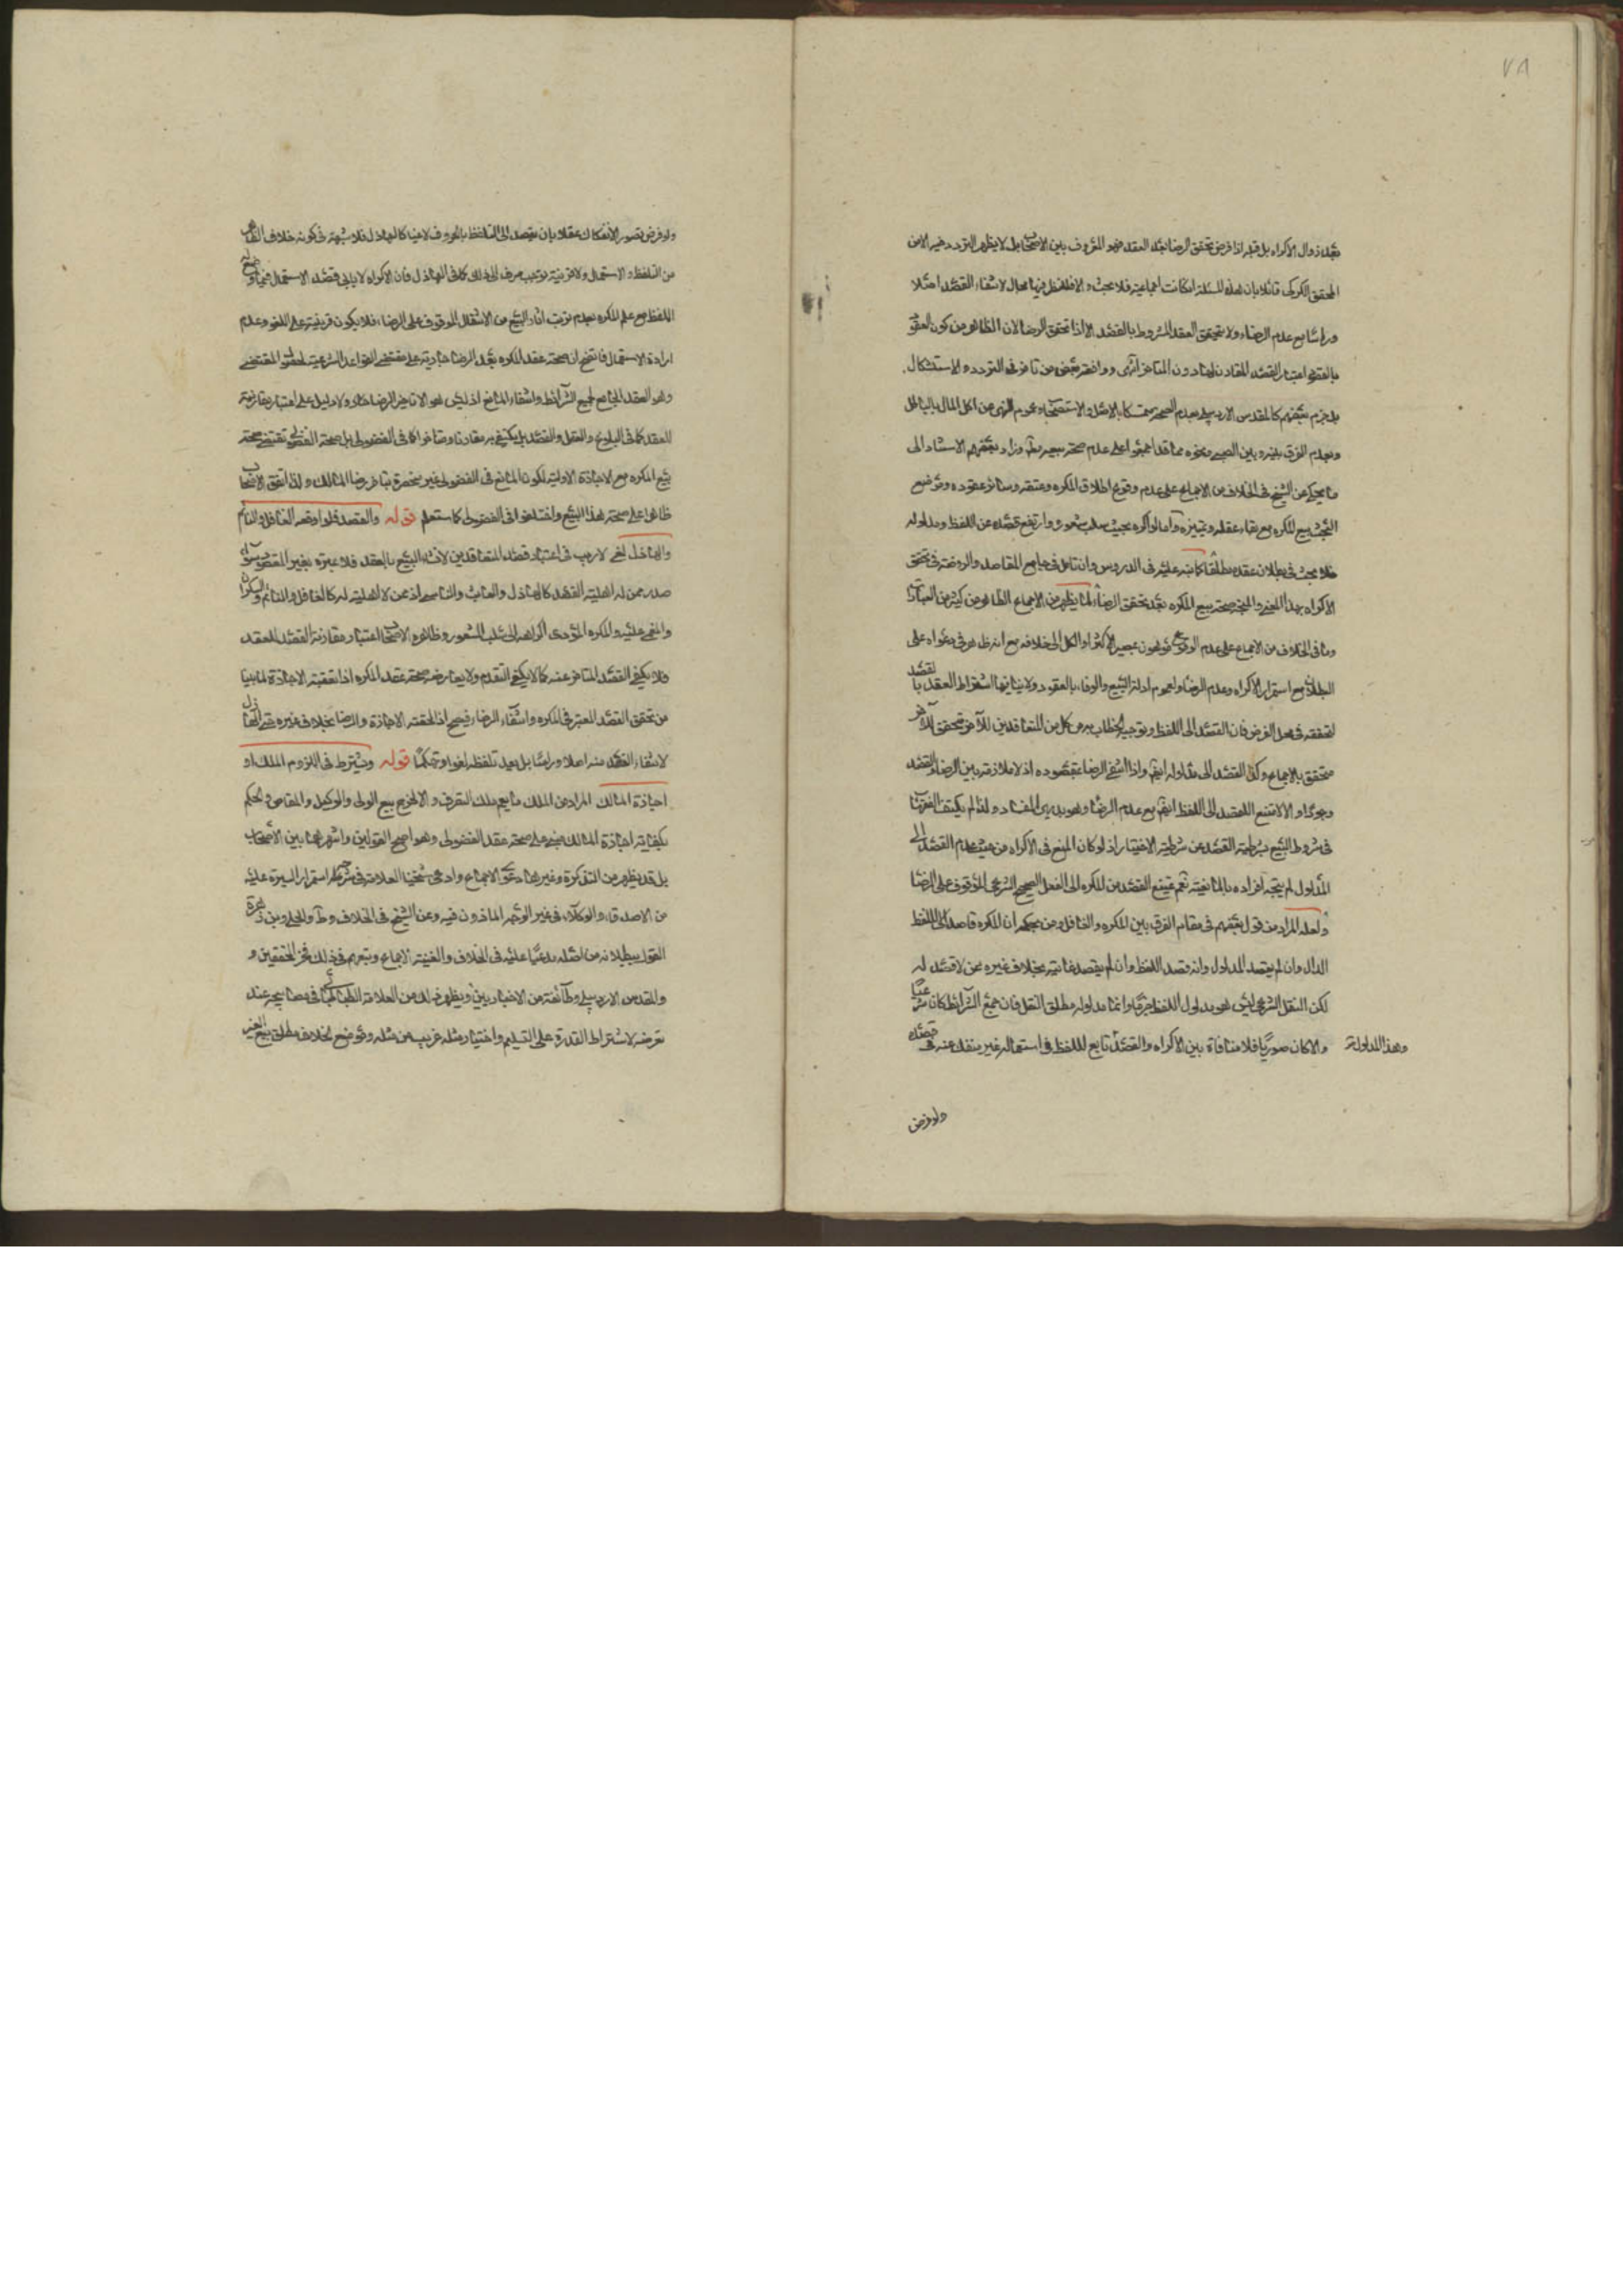 ٧٨
بعد زوال الاكراه بل قبله اذا فرض تحقق الرضا بعد العقد فهو المعروف بين الاصحاب بل لا يظهر التردد فيه الا من
المحقق الكركي قائلا بان هذه المسئلة ان كانت اجماعية فلا بحث والا فللنظر فيها مجال لانتفاء القصد اصلا
وراسا مع عدم الرضاء ولا يتحقق العقد المشروط بالقصد الا اذا تحقق الرضا لان الظاهر من كون العقود
بالقصد اعتبار القصد المقارن لها دون المتاخر انتهى ووافقه بعض من تاخر في التردد والاستشكال
بل جزم بعضهم كالمقدس الاردبيلي بعدم الصحة متمسكا بالاصل والاستصحاب وعموم النهي عن اكل المال بالباطل
وبعدم الفرق بينه وبين الصبي ونحوه مما قد اجمعوا على عدم صحة بيعه وزاد بعضهم الاستناد الى
ما يحكى عن الشيخ في الخلاف من الاجماع على عدم وقوع اطلاق المكره وعتقه وسائر عقوده وموضع
البحث بيع المكره مع بقاء عقله وتميزه واما لو اكره بحيث سلب شعوره وارتفع قصده عن اللفظ ومدلوله
فلا بحث في بطلان عقده مطلقا كما نبه عليه في الدروس وان تامل في جامع المقاصد والروضة في تحقق
الاكراه بهذا المعنى والمتجه صحة بيع المكره بعد تحقق الرضاء لما يظهر من الاجماع الظاهر من كثير من العبارات
وما في الخلاف من الاجماع على عدم الوقوع موهون بمصير الاكثر او الكل الى خلافه مع انه ظاهر في دعواه على
البطلان مع استمرار الاكراه وعدم الرضا ولعموم ادلة البيع والوفاء بالعقود ولا ينافيها اشتراط العقد بالقصد
لتحققه في محل الفرض فان القصد الى اللفظ وتوجيه الخطاب به من كل من المتعاقدين للآخر
متحقق بالاجماع وكذا القصد الى مدلوله ايضا واذا انتفى الرضا بمقصوده اذ لا ملازمة بين الرضا والقصد
وجودا والا لامتنع القصد الى اللفظ ايضا مع عدم الرضا وهو بديهي الفساد ولذا لم يكتف الفقهاء
في شروط البيع بشرطية القصد عن شرطية الاختيار اذ لو كان المنع في الاكراه من حيث عدم القصد الى
المدلول لم يتجه افراده بالمانعية نعم يمتنع القصد من المكره الى الفعل الصحيح الشرعي الموقوف على الرضا
ولعله المراد من قول بعضهم في مقام الفرق بين المكره والغافل ومن بحكمه ان المكره قاصد الى اللفظ
الدال وان لم يقصد المدلول وانه قصد اللفظ وان لم يقصد غايته بخلاف غيره ممن لا قصد له
لكن النقل الشرعي ليس هو مدلول اللفظ وانما مدلوله مطلق النقل فان جمع الشرائط كان شرعيا
والا كان صوريا فلا منافاة بين الاكراه والقصد تابع للفظ في استعماله غير منفك عنه في قصده
وهذا المدلول
ولو فرض
ولو فرض تصور الانفكاك عقلا بان يقصد الى التلفظ بالحروف لاغيا كالهازل فلا شبهة في كونه خلاف الظاهر
من التلفظ والاستعمال ولا قرينة توجب صرفه الى ذلك كما في الهازل فان الاكراه لا يابى قصد الاستعمال
اللفظ مع علم المكره بعدم ترتب اثار البيع من الانتقال الموقوف على الرضا فلا يكون قرينة على اللغو وعدم
ارادة الاستعمال فاتضح ان صحة عقد المكره بعد الرضا جارية على مقتضى القواعد الشرعية المقتضي
وهو العقد الجامع لجميع الشرائط وانتفاء المانع اذ ليس هو الا تاخير الرضا ولا دليل على اعتبار مقارنته
للعقد كما في البلوغ والعقل والقصد بل يكتفى به مقارنا ومتاخرا كما في الفضولي بل صحة الفضولي تقتضي صحة
بيع المكره مع الاجازة الاولوية لكون المانع في الفضولي غير منحصر بتاخر رضا المالك ولذا اتفق الاصحاب
ظاهرا على صحة هذا البيع واختلفوا في الفضولي كما ستعلم قوله والقصد فلو اوقعه الغافل والنائم
والهازل لغى لا ريب في اعتبار قصد المتعاقدين لانشاء البيع بالعقد فلا عبرة بغير المقصود سواء
صدر ممن له اهلية القصد كالهازل والعابث والناسي او ممن لا اهلية له كالغافل والنائم والسكران
والمغمى عليه والمكره المؤدى اكراهه الى سلب الشعور وظاهر الاصحاب اعتبار مقارنة القصد للعقد
فلا يكفي القصد المتاخر عنه كما لا يكفي المتقدم ولا يعارضه صحة عقد المكره اذا تعقبته الاجازة لما بينا
من تحقق القصد المعتبر في المكره وانتفاء الرضاء فيصح اذا لحقته الاجازة والرضا بخلاف غيره حتى الهازل
لانتفاء القصد منه اصلا وراسا بل يعد تلفظه لغوا وتهكما قوله ويشترط في اللزوم الملك او
اجازة المالك المراد من الملك ما يعم ملك التصرف والا لخرج بيع الولي والوكيل والمقاص والحكم
بكفاية اجازة المالك مبني على صحة عقد الفضولي وهو اصح القولين واشهرهما بين الاصحاب
بل قد يظهر من التذكرة وغيرها دعوى الاجماع وادعى شيخنا العلامة في شرحه استمرار السيرة عليه
من الاصدقاء والوكلاء في غير الوجه الماذون فيه وعن الشيخ في الخلاف وط والحلي وبن زهرة
القول ببطلانه من اصله مدعيا عليه في الخلاف والغنية الاجماع وتبعهم في ذلك فخر المحققين و
والمقدس الاردبيلي وطائفة من الاخباريين ويظهر ذلك من العلامة الطباطبائي في مصابيحه عند
تعرضه لاشتراط القدرة على التسليم واختيار مثله غريب من مثله وموضع الخلاف مطلق بيع الغير